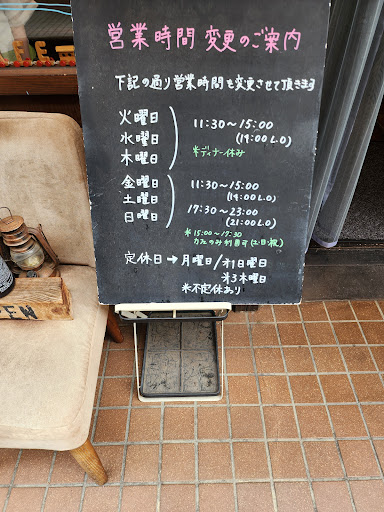 営業時間 変更のご案内
下記の通り営業時間を変更させて頂きます
火曜日
水曜日
木曜日
11:30〜15:00
(14:00 L.O)
※ディナー休み
金曜日
土曜日
日曜日
11:30〜15:00
(14:00 L.O)
17:30〜23:00
(21:00 L.O)
※15:00〜17:30
カフェのみ利用可(土・日・祝)
定休日→月曜日/第1日曜日
第3木曜日
※不定休あり